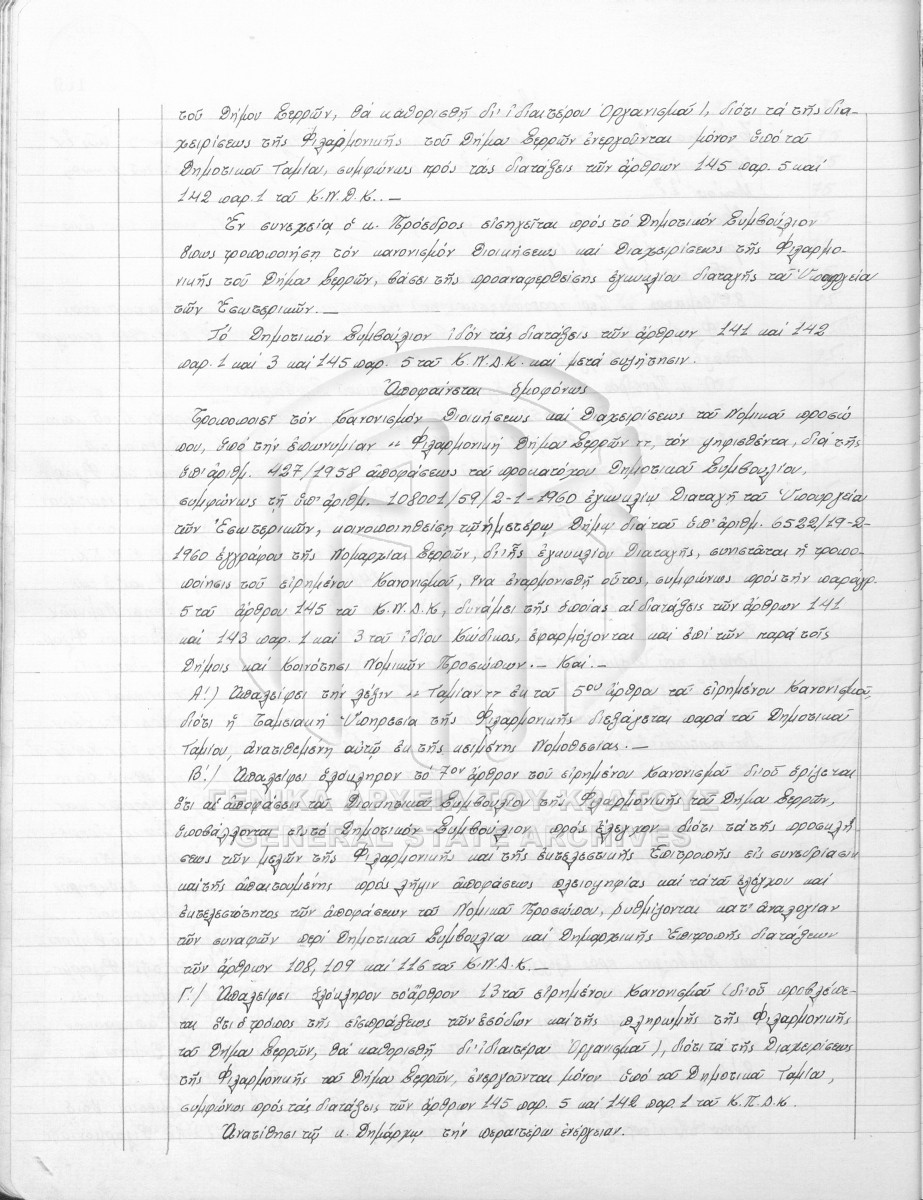 τοῦ Δήμου Σερρῶν, θά καθορισθῇ δι' ἰδιαιτέρου Ὀργανισμοῦ), διότι τά τῆς δια-
χειρίσεως τῆς Φιλαρμονικῆς τοῦ Δήμου Σερρῶν ἐνεργοῦνται μόνον ὑπό τοῦ
Δημοτικοῦ Ταμίου, συμφώνως πρός τάς διατάξεις τῶν ἄρθρων 145 παρ. 5 καί
142 παρ. 1 τοῦ Κ.Ν.Δ.Κ.. —
Ἐν συνεχείᾳ ὁ κ. Πρόεδρος εἰσηγεῖται πρός τό Δημοτικόν Συμβούλιον
ὅπως τροποποιήσῃ τόν κανονισμόν Διοικήσεως καί Διαχειρίσεως τῆς Φιλαρμο-
νικῆς τοῦ Δήμου Σερρῶν, βάσει τῆς προαναφερθείσης ἐγκυκλίου διαταγῆς τοῦ Ὑπουργείου
τῶν Ἐσωτερικῶν. —
Τό Δημοτικόν Συμβούλιον ἰδόν τάς διατάξεις τῶν ἄρθρων 141 καί 142
παρ. 1 καί 3 καί 145 παρ. 5 τοῦ Κ.Ν.Δ.Κ. καί μετά συζήτησιν.
Ἀποφαίνεται ὁμοφώνως
Τροποποιεῖ τόν Κανονισμόν Διοικήσεως καί Διαχειρίσεως τοῦ Νομικοῦ προσώ
που, ὑπό τήν ἐπωνυμίαν " Φιλαρμονική Δήμου Σερρῶν ", τόν ψηφισθέντα, διά τῆς
ὑπ' ἀριθμ. 427/1958 ἀποφάσεως τοῦ προκατόχου Δημοτικοῦ Συμβουλίου,
συμφώνως τῇ ὑπ' ἀριθμ. 108001/59/2-1-1960 ἐγκυκλίῳ Διαταγῇ τοῦ Ὑπουργείου
τῶν Ἐσωτερικῶν, κοινοποιηθείσῃ τῷ ἡμετέρῳ Δήμῳ διά τοῦ ὑπ' ἀριθμ. 6522/19-2-
1960 ἐγγράφου τῆς Νομαρχίας Σερρῶν, δι' ἧς ἐγκυκλίου Διαταγῆς, συνιστᾶται ἡ τροπο-
ποίησις τοῦ εἰρημένου Κανονισμοῦ, ἵνα ἐναρμονισθῇ οὗτος, συμφώνως πρός τήν παράγρ.
5 τοῦ ἄρθρου 145 τοῦ Κ.Ν.Δ.Κ, δυνάμει τῆς ὁποίας αἱ διατάξεις τῶν ἄρθρων 141
καί 143 παρ. 1 καί 3 τοῦ ἰδίου Κώδικος, ἐφαρμόζονται καί ἐπί τῶν παρά τοῖς
Δήμοις καί Κοινότησι Νομικῶν Προσώπων. — Καί. —
Α!) Ἀπαλείφει τήν λέξιν " Ταμίαν " ἐκ τοῦ 5ου ἄρθρου τοῦ εἰρημένου Κανονισμοῦ,
διότι ἡ Ταμειακή Ὑπηρεσία τῆς Φιλαρμονικῆς διεξάγεται παρά τοῦ Δημοτικοῦ
Ταμίου, ἀνατιθεμένη αὐτῷ ἐκ τῆς κειμένης Νομοθεσίας. —
Β!/ Ἀπαλείφει ὁλόκληρον τό 7ον ἄρθρον τοῦ εἰρημένου Κανονισμοῦ δι' οὗ ὁρίζεται
ὅτι αἱ ἀποφάσεις τοῦ Διοικητικοῦ Συμβουλίου τῆς Φιλαρμονικῆς τοῦ Δήμου Σερρῶν,
ὑποβάλλονται εἰς τό Δημοτικόν Συμβούλιον πρός ἔλεγχον διότι τά τῆς προσκλή-
σεως τῶν μελῶν τῆς Φιλαρμονικῆς καί τῆς ἐκτελεστικῆς Ἐπιτροπῆς εἰς συνεδρίασιν
καί τῆς ἀπαιτουμένης πρός λῆψιν ἀποφάσεως πλειοψηφίας καί τά τοῦ ἐλέγχου καί
ἐκτελεστότητος τῶν ἀποφάσεων τοῦ Νομικοῦ Προσώπου, ρυθμίζονται κατ' ἀναλογίαν
τῶν συναφῶν περί Δημοτικοῦ Συμβουλίου καί Δημαρχικῆς Ἐπιτροπῆς διατάξεων
τῶν ἄρθρων 108, 109 καί 116 τοῦ Κ.Ν.Δ.Κ. —
Γ!/ Ἀπαλείφει ὁλόκληρον τό ἄρθρον 13 τοῦ εἰρημένου Κανονισμοῦ (δι' οὗ προβλέπε-
ται ὅτι ὁ τρόπος τῆς εἰσπράξεως τῶν ἐσόδων καί τῆς πληρωμῆς τῆς Φιλαρμονικῆς
τοῦ Δήμου Σερρῶν, θά καθορισθῇ δι' ἰδιαιτέρου Ὀργανισμοῦ), διότι τά τῆς Διαχειρίσεως
τῆς Φιλαρμονικῆς τοῦ Δήμου Σερρῶν, ἐνεργοῦνται μόνον ὑπό τοῦ Δημοτικοῦ Ταμίου,
συμφώνως πρός τάς διατάξεις τῶν ἄρθρων 145 παρ. 5 καί 142 παρ. 1 τοῦ Κ.Π.Δ.Κ.
Ἀνατίθησι τῷ κ. Δημάρχῳ τήν περαιτέρω ἐνέργειαν.
ΓΕΝΙΚΑ ΑΡΧΕΙΑ ΤΟΥ ΚΡΑΤΟΥΣ
GENERAL STATE ARCHIVES